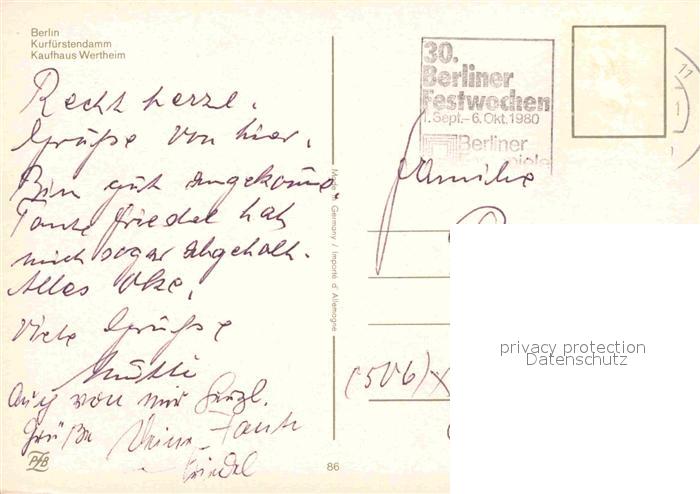 Berlin
Kurfürstendamm
Kaufhaus Wertheim
Recht herzl.
Grüße von hier.
Bin gut angekomme.
Tante Friedel hat
mich sogar abgeholt.
Alles Oke,
Viele Grüße
Mutti
Auch von mir herzl.
Grüße Deine Tante
Friedel
PfB
86
Made in Germany / Importé d'Allemagne
30.
Berliner
Festwochen
1. Sept.–6. Okt. 1980
Berliner
spiele
17
1
Familie
(506)
privacy protection
Datenschutz